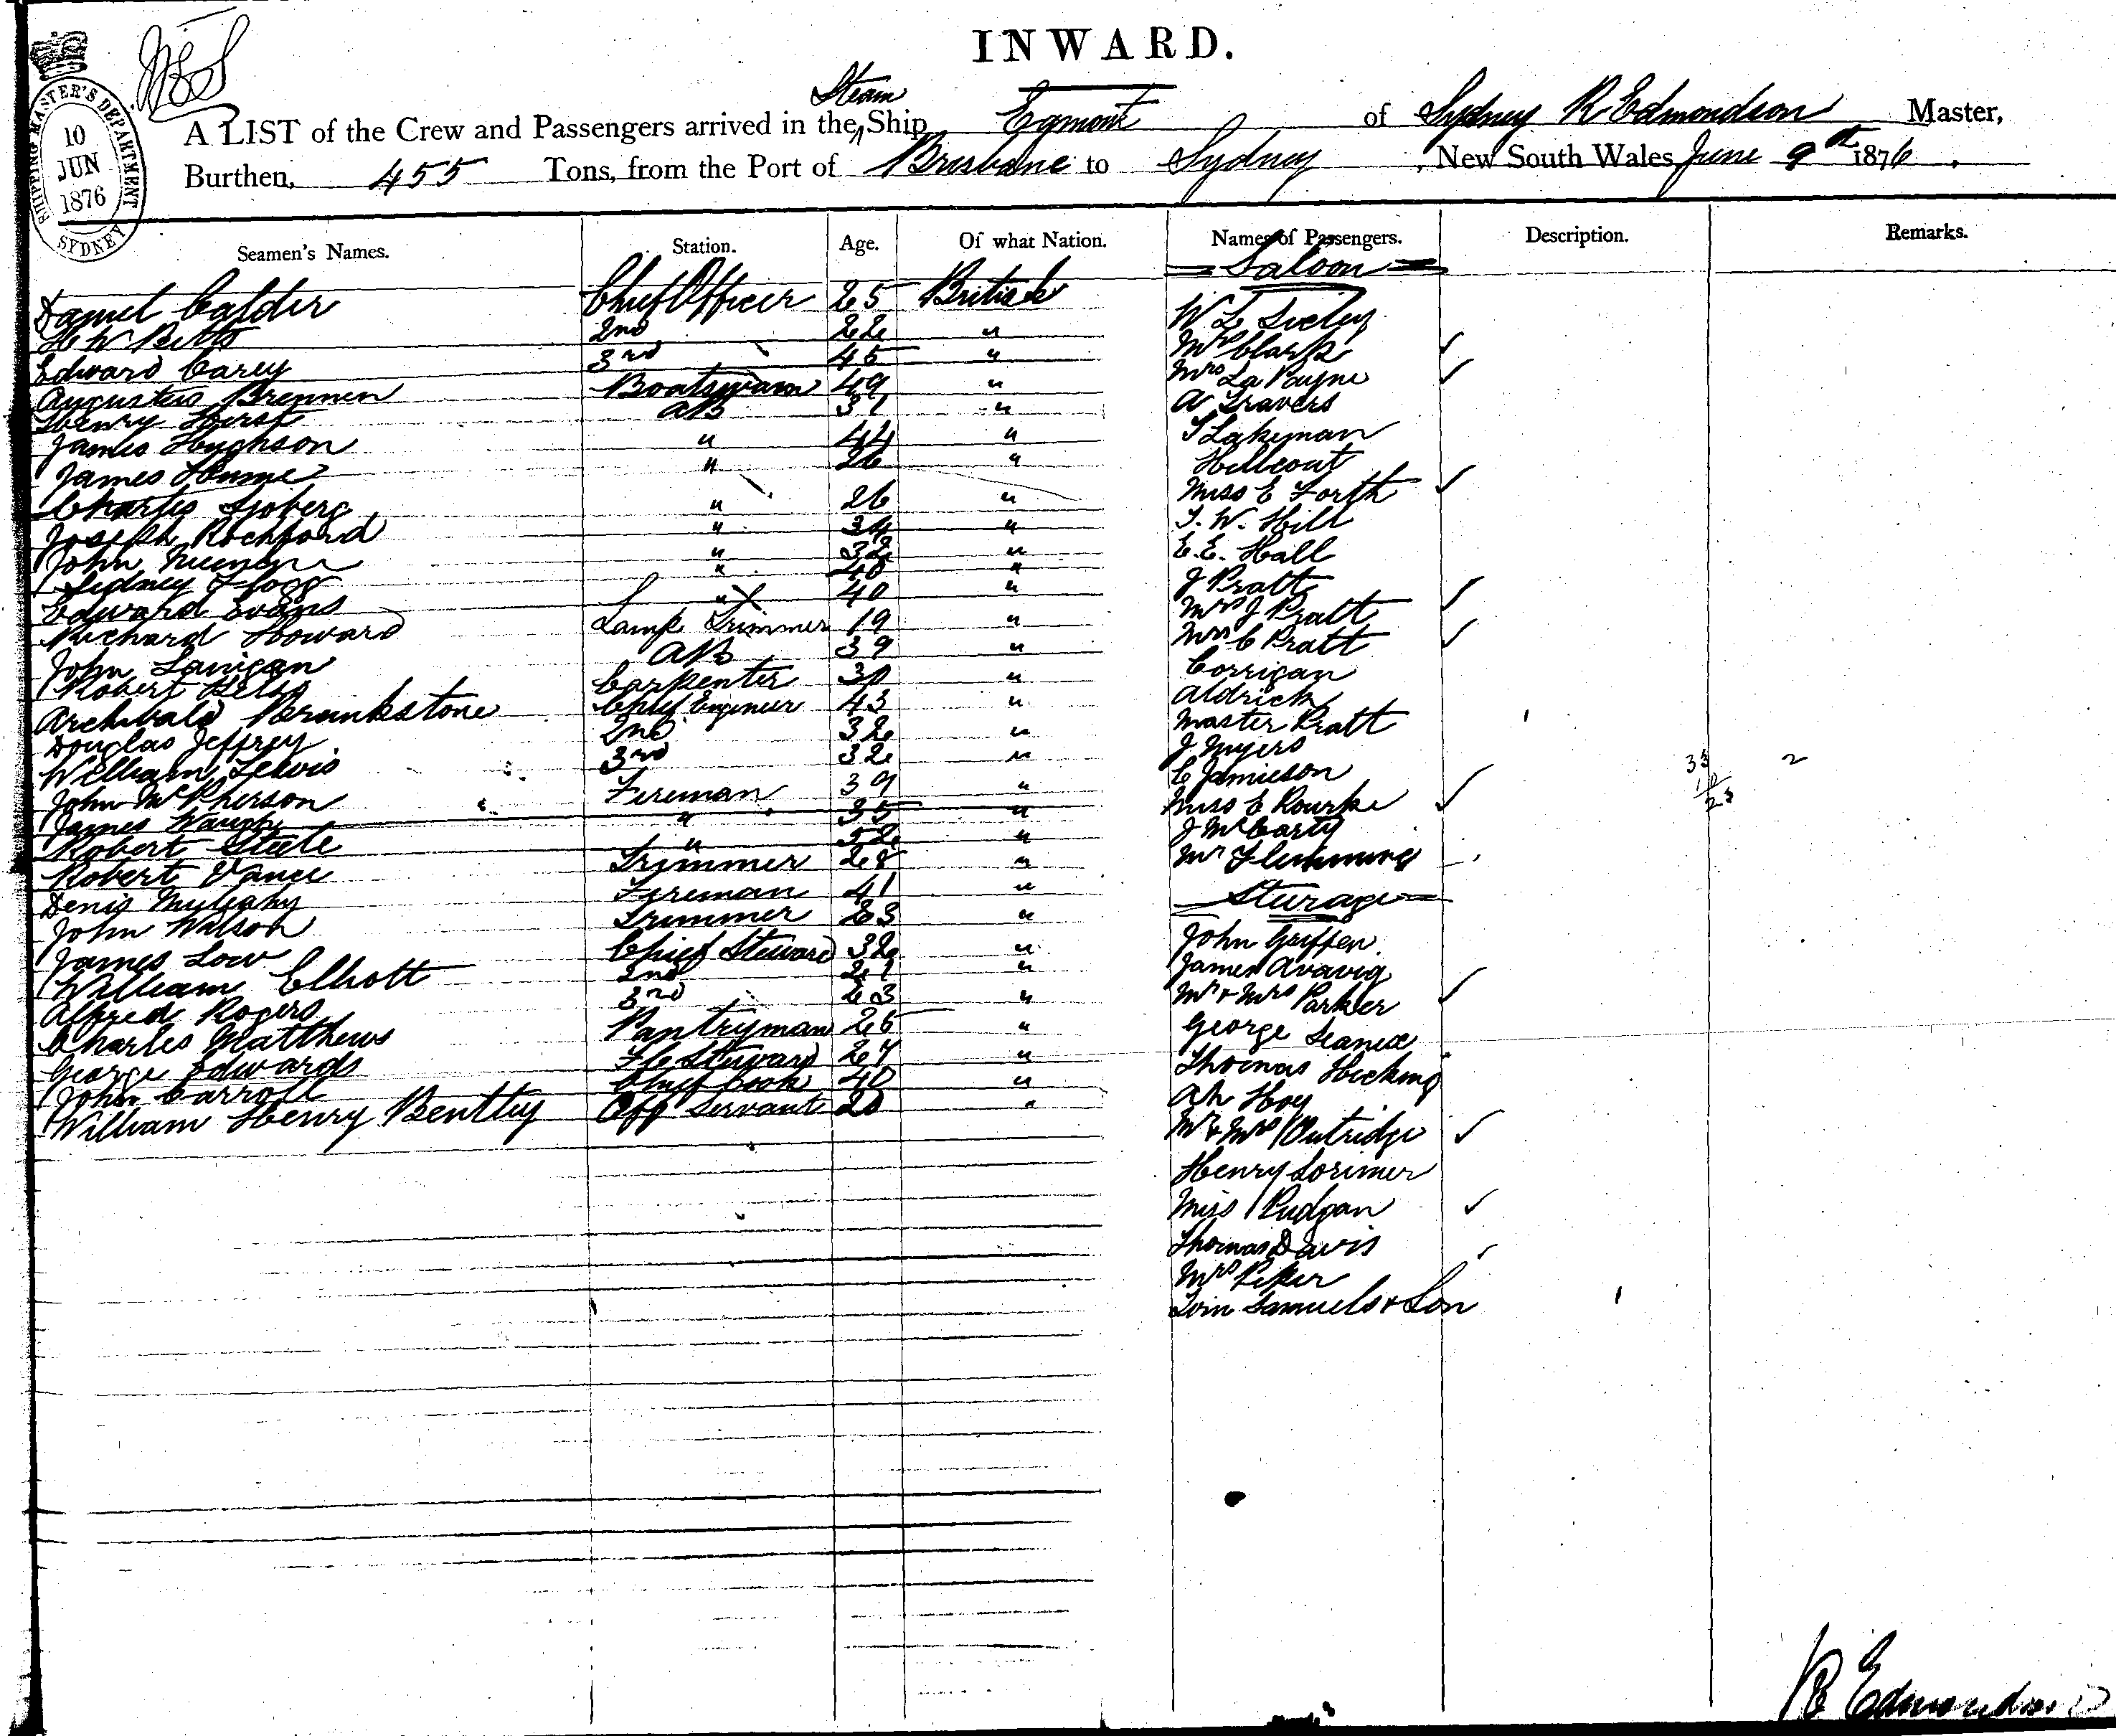 INWARD.
SHIPPING MASTER'S DEPARTMENT
10
JUN
1876
SYDNEY
A LIST of the Crew and Passengers arrived in the Steam Ship Egmont of Sydney R Edmondson Master,
Burthen, 455 Tons, from the Port of Brisbane to Sydney, New South Wales, June 9th 1876.
Seamen's Names. Station. Age. Of what Nation. Names of Passengers. Description. Remarks.
Saloon
Daniel Calder Chief Officer 25 British
H W Pitts 2nd 22 "
Edward Carey 3rd 45 "
Augustus Brennen Boatswain 49 "
Henry Hurst AB 31 "
James Hughson " 44 "
James Hume " 26 "
Charles Sjoberg " 26 "
Joseph Rochford " 34 "
John " 32 "
Sidney Flogg " 40 "
Edward Evans " 40 "
Richard Howard Lamp Trimmer 19 "
John Lanigan AB 39 "
Robert Carpenter 30 "
Archibald Brunkstone Chief Engineer 43 "
Douglas Jeffrey 2nd 32 "
William Lewis 3rd 32 "
John McPherson Fireman 39 "
James Waugh " 35 "
Robert Steele " 52 "
Robert Vance Trimmer 28 "
Denis Mulcahy Fireman 41 "
John Wilson Trimmer 23 "
James Low Chief Steward 32 "
William Elliott 2nd 21 "
Alfred Rogers 3rd 23 "
Charles Matthews Pantryman 25 "
George Edwards Steward 27 "
John Carroll Chief Cook 40 "
William Henry Bentley Off Servant 20 "
W L
Mrs Clark
Mrs La Payne
A Travers
Lakeman
Hillcoat
Miss E Forth
T. W. Hill
E. E. Hall
J Pratt
Mrs J Pratt
Mrs C Pratt
Corrigan
Aldrich
Master Pratt
J Myers
C Jamieson
Miss E Rourke
J McCarty
Mr Flemming
Steerage
John Griffen
James
Mr & Mrs Parker
George
Thomas Hicking
Ah Hoy
Mr & Mrs Outridge
Henry Lorimer
Miss Pudgan
Thomas Davis
Mrs Piker
Samuels & Son
33 2
10
23
R Edmondson